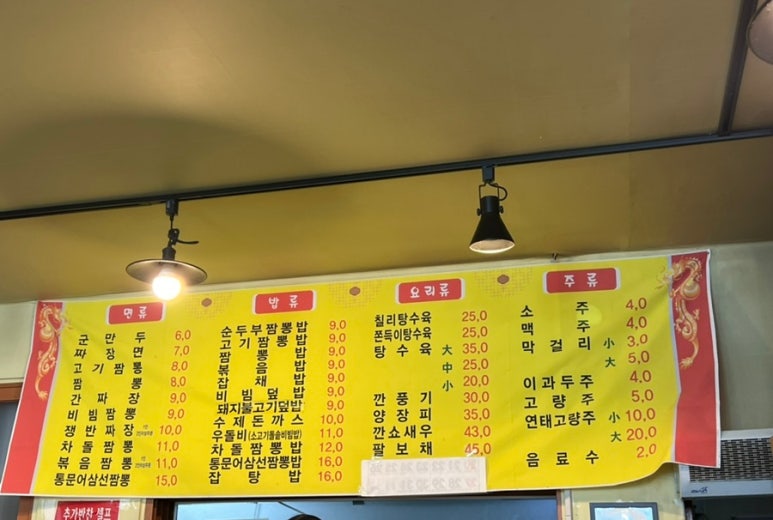 면류
군만두 6,0
짜장면 7,0
고기짬뽕 8,0
짬뽕 8,0
간짜장 9,0
비빔짬뽕 9,0
쟁반짜장 10,0
차돌짬뽕 11,0
볶음짬뽕 11,0
통문어삼선짬뽕 15,0
밥류
순두부짬뽕밥 9,0
고기짬뽕밥 9,0
짬뽕밥 9,0
볶음밥 9,0
잡채밥 9,0
비빔덮밥 9,0
돼지불고기덮밥 9,0
수제돈까스 10,0
우돌비(소고기돌솥비빔밥) 11,0
차돌짬뽕밥 12,0
통문어삼선짬뽕밥 16,0
잡탕밥 16,0
요리류
칠리탕수육 25,0
쫀득이탕수육 25,0
탕수육 大 35,0
中 25,0
小 20,0
깐풍기 30,0
양장피 35,0
깐쇼새우 43,0
팔보채 45,0
주류
소주 4,0
맥주 4,0
막걸리 小 3,0
大 5,0
이과두주 4,0
고량주 5,0
연태고량주 小 10,0
大 20,0
음료수 2,0
추가반찬 셀프